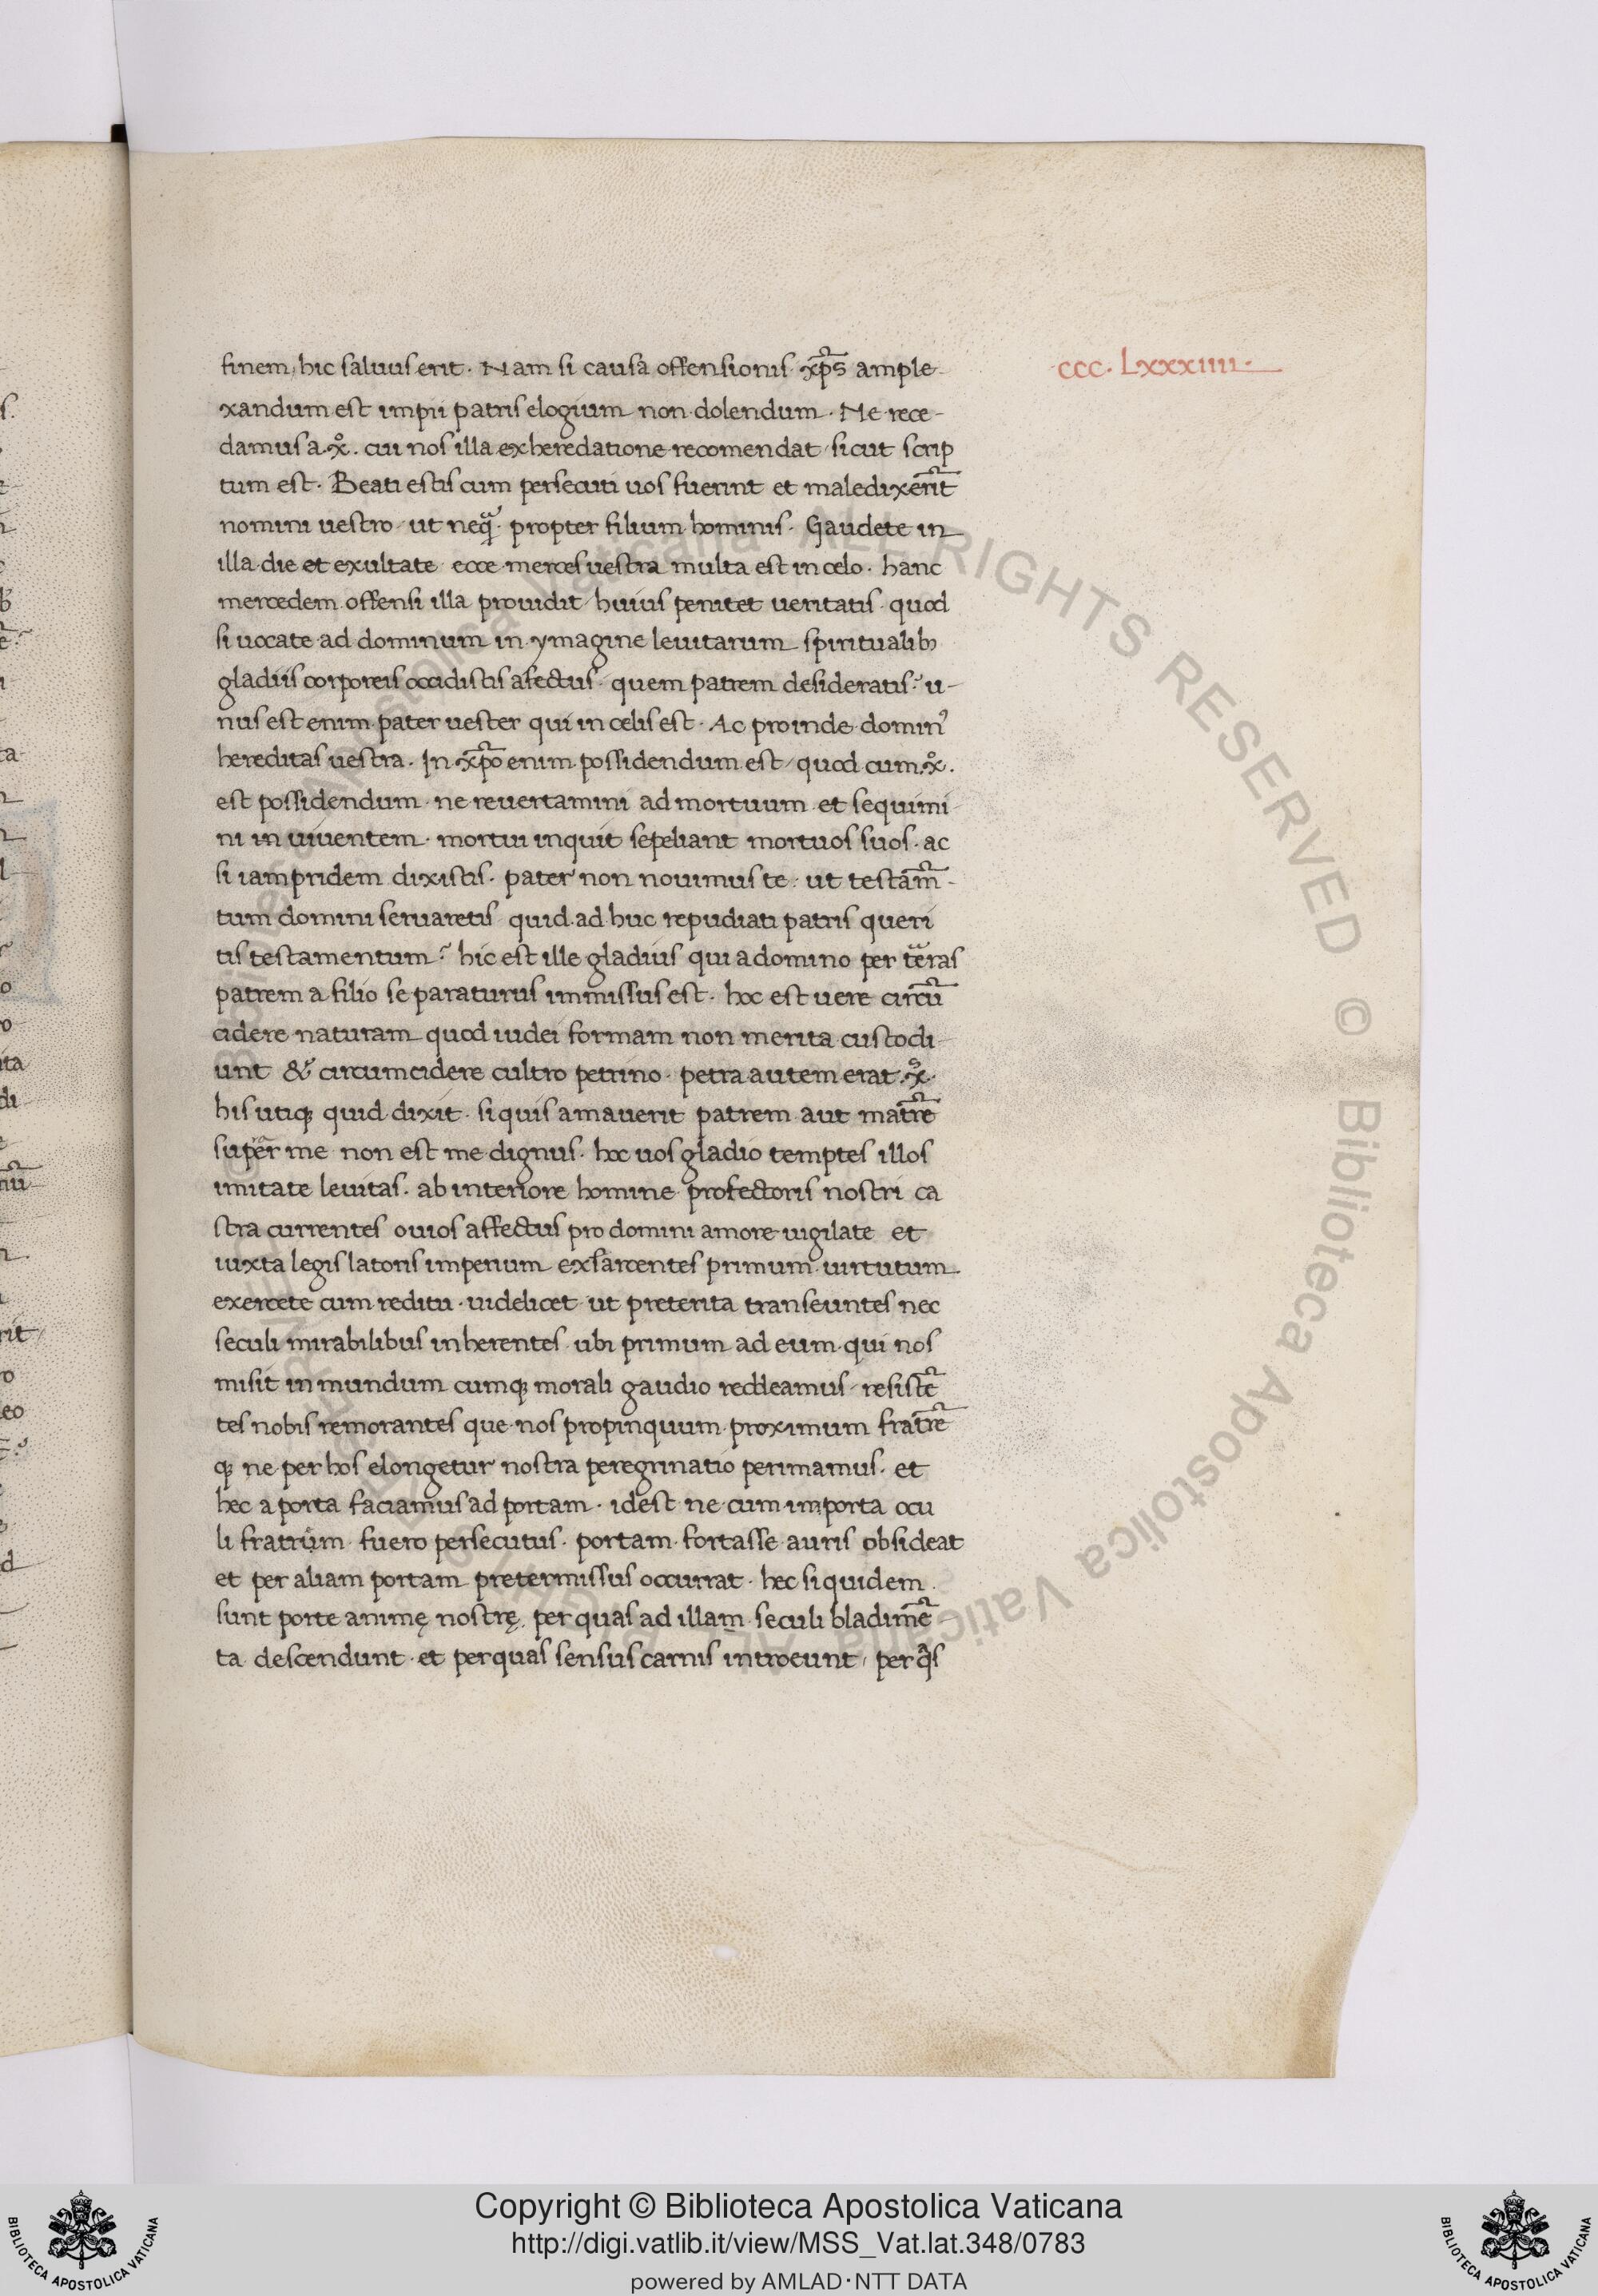 CCC. LXXXIIII.
finem, hic saluus erit. Nam si causa offensionis xp̄s ample-
xandum est impii patris elogium non dolendum. Ne rece-
damus a .x̊. cui nos illa exheredatione recomendat, sicut scrip
tum est. Beati estis cum persecuti uos fuerint et maledixerīt
nomini uestro, ut neq̄. propter filium hominis. Gaudete in
illa die et exultate ecce merces uestra multa est in celo. hanc
mercedem offensi illa prouidit, huius penitet ueritatis. quod
si uocate ad dominum in ymagine leuitarum spiritualibꝫ
gladiis corporeis occidistis afectus. quem patrem desideratis? u-
nus est enim pater uester qui in celis est. Ac proinde dominꝰ
hereditas uestra. In xp̄o enim possidendum est, quod cum .x̊.
est possidendum. ne reuertamini ad mortuum et sequimi-
ni in uiuentem. mortui inquit sepeliant mortuos suos. ac
si iampridem dixistis. pater non nouimus te: ut testam̄-
tum domini seruaretis quid ad huc repudiati patris queri
tis testamentum? hic est ille gladius qui a domino per terras
patrem a filio separaturus immissus est. hoc est uere circū
cidere naturam quod iudei formam non merita custodi-
unt & circumcidere cultro petrino. petra autem erat .x̊.
his utiqꝫ quid dixit. si quis amauerit patrem aut matrē
super me non est me dignus. hoc uos gladio temptes illos
imitate leuitas. ab interiore homine profectoris nostri ca
stra currentes ouios affectus pro domini amore uigilate et
iuxta legis latoris imperium exsarcentes primum uirtutum
exercete cum reditu. uidelicet ut preterita transeuntes nec
seculi mirabilibus inherentes ubi primum ad eum qui nos
misit in mundum cumqꝫ morali gaudio reddeamus, resistē
tes nobis remorantes que nos propinquum proximum fratrē
qꝫ ne per hos elongetur nostra peregrinatio perimamus. et
hec a porta faciamus ad portam. idest ne cum importa ocu
li fratrum fuero persecutus. portam fortasse auris obsideat
et per aliam portam pretermissus occurrat. hec siquidem
sunt porte animę nostrę. per quas ad illam seculi bladimē
ta descendunt et per quas sensus carnis introeunt, per q̄s
Copyright © Biblioteca Apostolica Vaticana
http://digi.vatlib.it/view/MSS_Vat.lat.348/0783
powered by AMLAD·NTT DATA
BIBLIOTECA APOSTOLICA VATICANA
BIBLIOTECA APOSTOLICA VATICANA